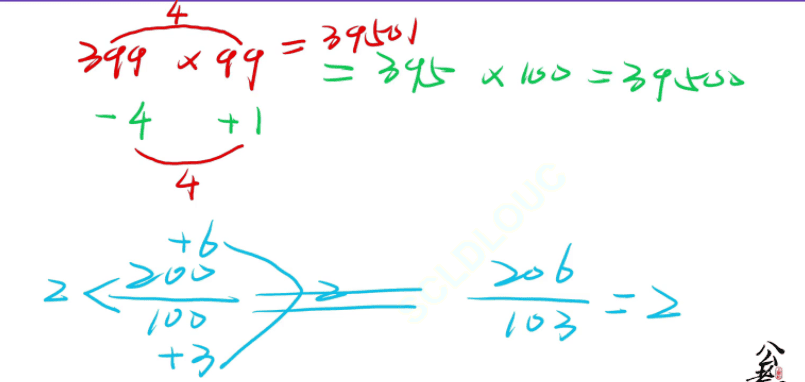 4
399 × 99 = 39501
= 395 × 100 = 39500
-4 +1
4
+6
2 < 200/100 = 2 = 206/103 = 2
+3
SCLDLOUC
公